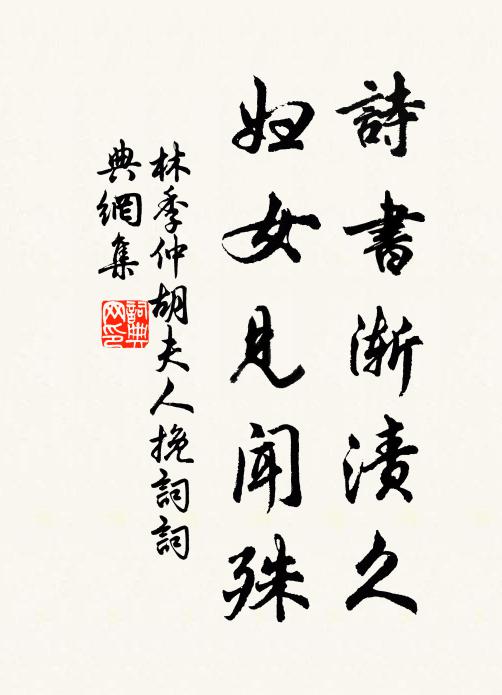 詩書漸漬久
妇女見闻殊
林季仲胡夫人挽詞詞
典網集
詞典网印